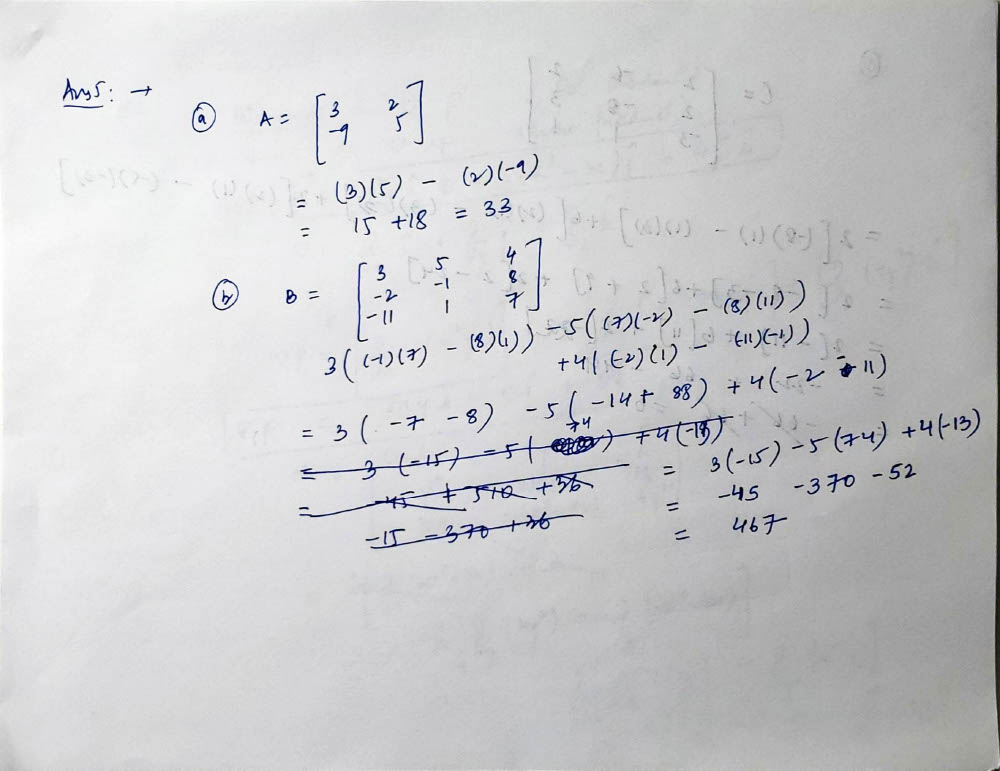 Ans5: →
(a) A = [3 2
-9 5]
= (3)(5) - (2)(-9)
= 15 +18 = 33
(b) B = [3 5 4
-2 -1 8
-11 1 7]
3((-1)(7) - (8)(1)) - 5((7)(-2) - (8)(11))
+4((-2)(1) - (-11)(-1))
= 3(-7 -8) - 5(-14+ 88) + 4(-2 - 11)
= 3(-15) - 5(74) + 4(-13)
= -45 + 510 +36
-15 - 370 +36
= 3(-15) - 5(74) + 4(-13)
= -45 -370 -52
= 467